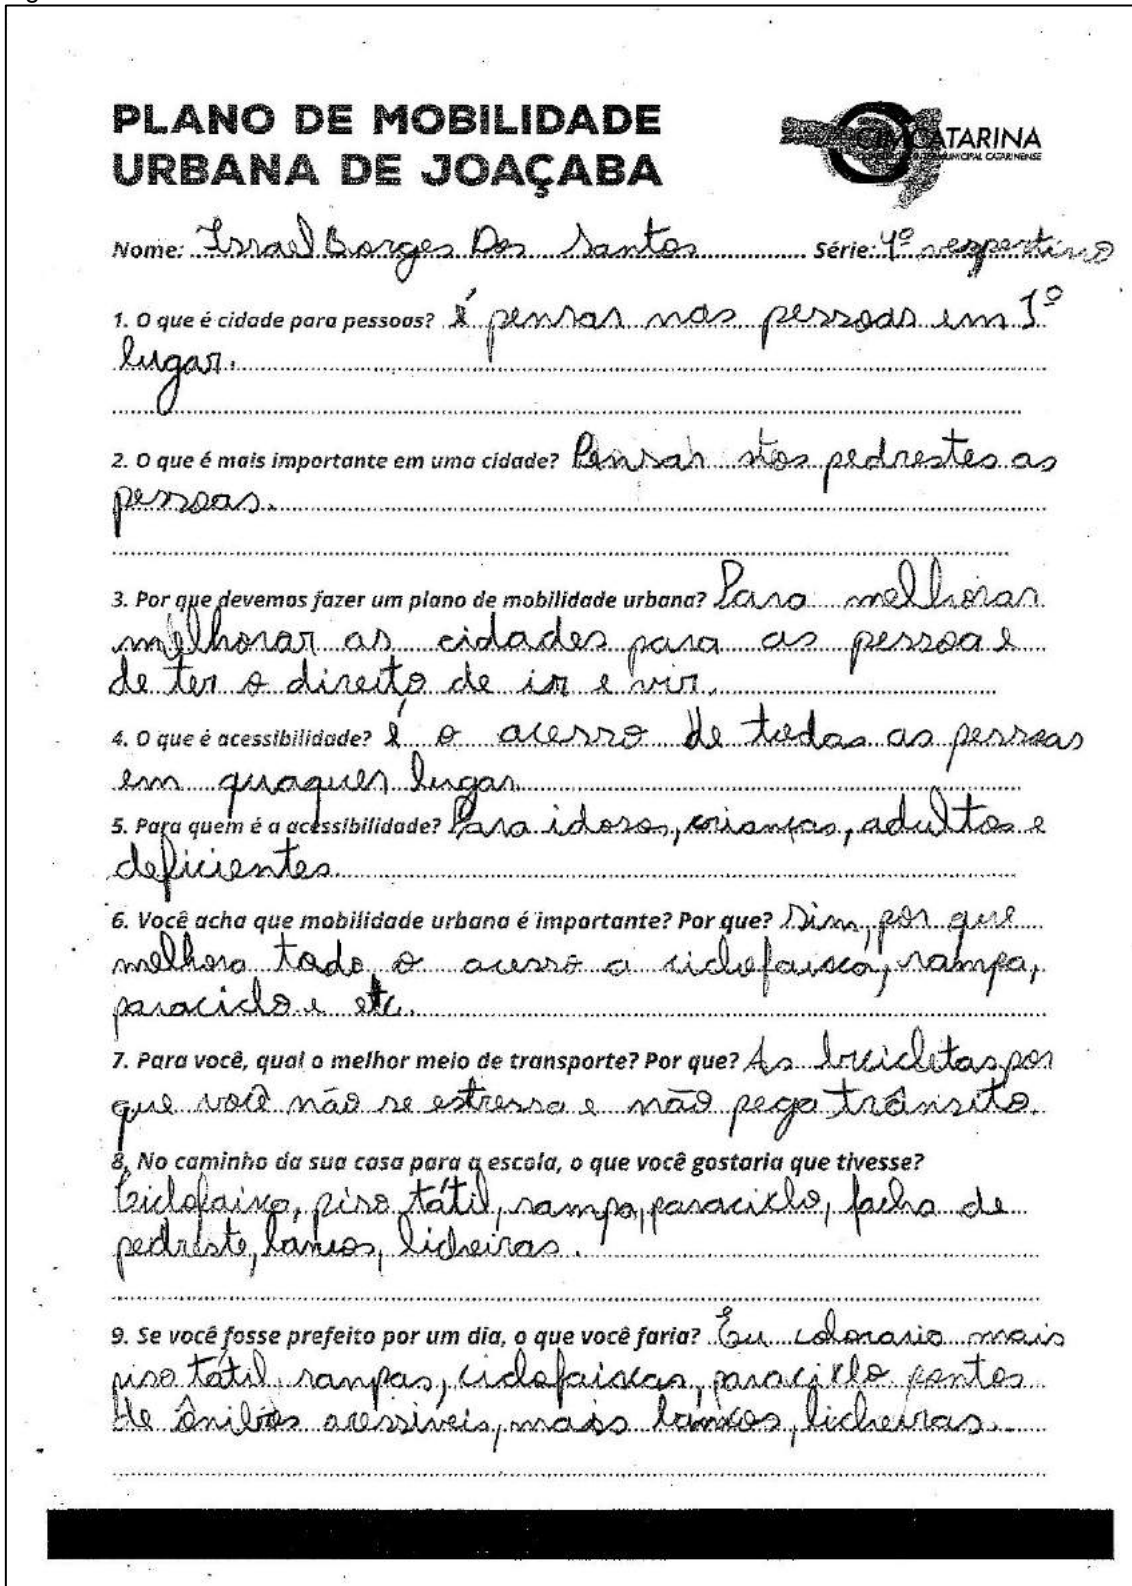 PLANO DE MOBILIDADE
URBANA DE JOAÇABA
CIMCATARINA
Nome: Israel Borges Dos Santos Série: 4º vespertino
1. O que é cidade para pessoas? é pensar nas pessoas em 1º
lugar.
2. O que é mais importante em uma cidade? Pensar nos pedrestes as
pessoas.
3. Por que devemos fazer um plano de mobilidade urbana? Para melhorar
melhorar as cidades para as pessoa e
de ter o direito de ir e vir.
4. O que é acessibilidade? é o acesso de todas as pessoas
em quaquer lugar
5. Para quem é a acessibilidade? Para idosos, crianças, adultos e
deficientes.
6. Você acha que mobilidade urbana é importante? Por que? Sim, por que
melhora todo o acesso a ciclofaixa, rampa,
paraciclo e etc.
7. Para você, qual o melhor meio de transporte? Por que? As bicicletas por
que você não se estressa e não pega trânsito.
8. No caminho da sua casa para a escola, o que você gostaria que tivesse?
Ciclofaixa, piso tátil, rampa, paraciclo, facha de
pedreste, bancos, licheiras.
9. Se você fosse prefeito por um dia, o que você faria? Eu colocaria mais
piso tátil, ranpas, ciclofaixas, paraciclo pontos
de ônibus acessíveis, mais bancos, licheiras.